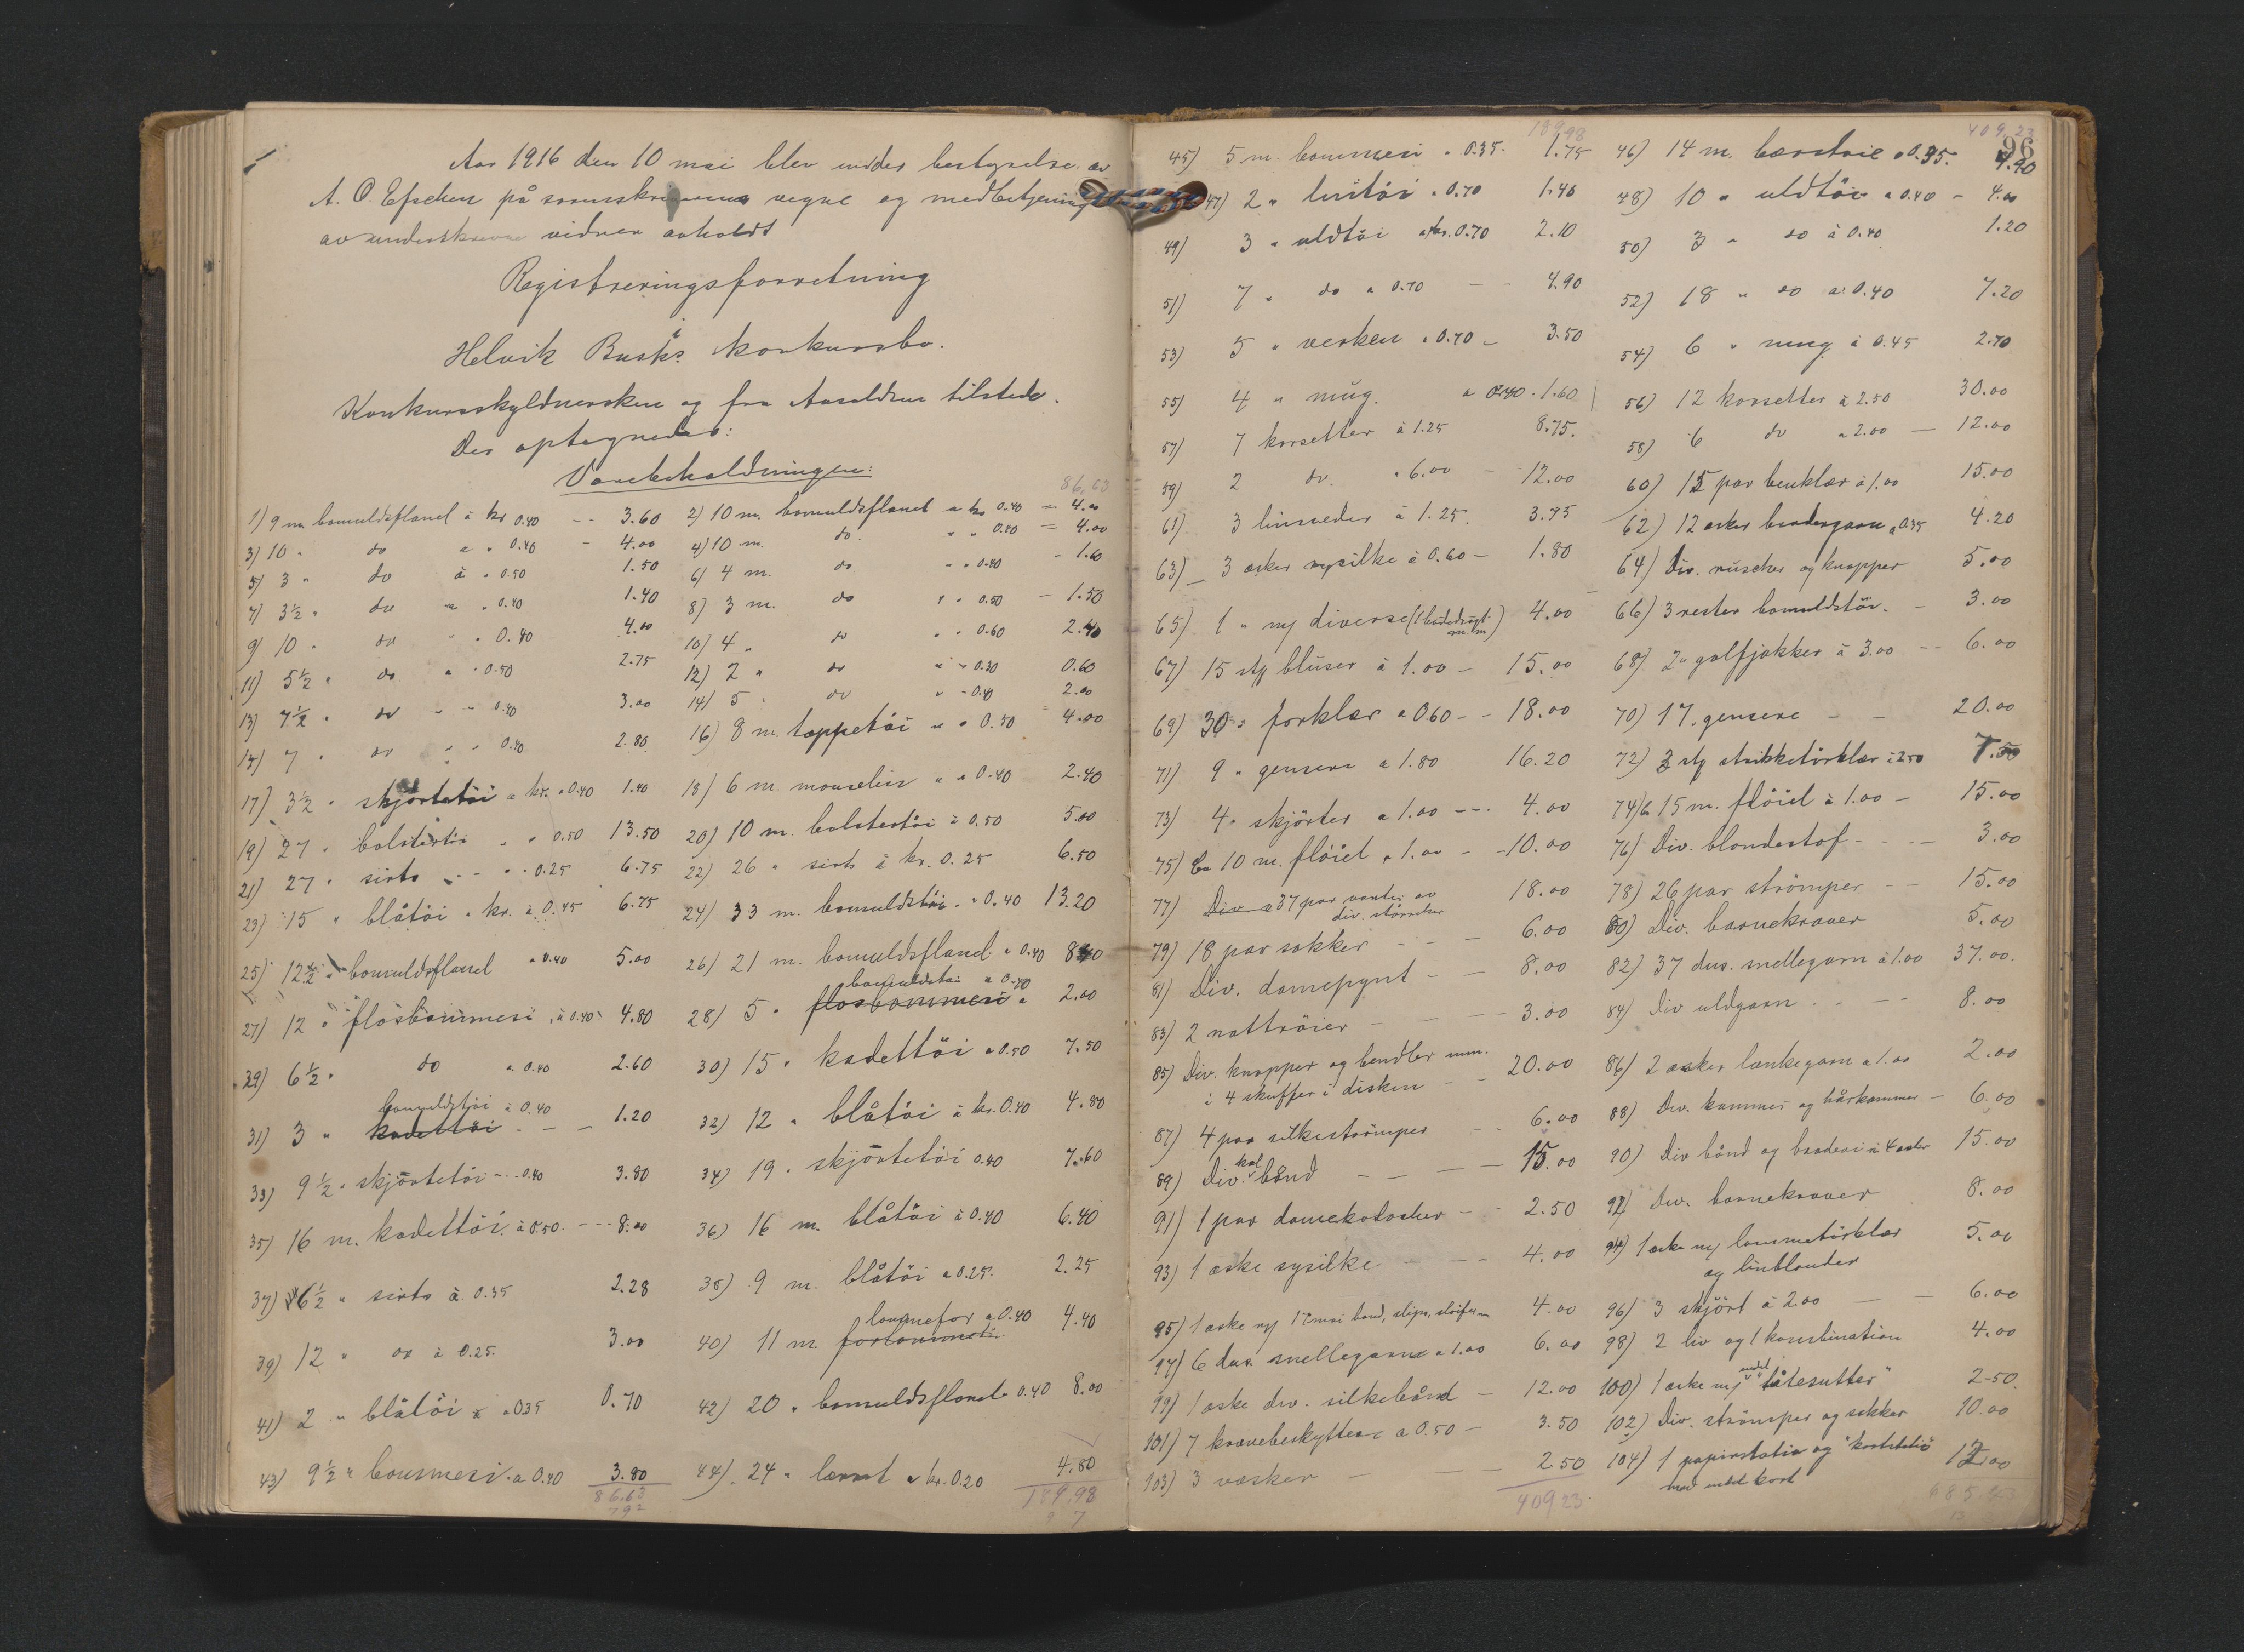 Aar 1916 den 10 mai blev under bestyrelse av
A. O. på sorenskriverens vegne og medbetjening
av underskrevne vidner avholdt
Registreringsforretning
i
Helvik Busks konkursbo.
Konkursskyldnersken og fru tilstede.
Der optegnedes:
Varebeholdningen:
86,63
1) 9 m bomuldsflanel à kr 0.40 -- 3.60 2) 10 m. bomuldsflanel a kr 0.40 = 4.00
3) 10 " do a " 0.40 - 4.00 4) 10 m. do " " 0.40 = 4.00
5) 3 " do à " 0.50 1.50 6) 4 m. do " " 0.40 - 1.60
7) 3½ " do a " 0.40 1.40 8) 3 m. do " " 0.50 - 1.50
9) 10 " do " " 0.40 4.00 10) 4 " do " " 0.60 2.40
11) 5½ " do a " 0.50 2.75 12) 2 " do " " 0.30 0.60
13) 7½ " do " " 0.40 3.00 14) 5 " do " " 0.40 2.00
15) 7 " do " " 0.40 2.80 16) 8 m. tæppetöi " " 0.50 4.00
17) 3½ " skjörtetöi a kr. " 0.40 1.40 18) 6 m. mouselin " a 0.40 2.40
19) 27 " bolstertöi " " 0.50 13.50 20) 10 m. bolstertöi à 0.50 5.00
21) 27 " sirts - - " 0.25 6.75 22) 26 " sirts à kr. 0.25 6.50
23) 15 " blåtöi " kr. à 0.45 6.75 24) 33 m. bomuldstöi - " 0.40 13.20
25) 12½ " bomuldsflanel " 0.40 5.00 26) 21 m. bomuldsflanel " 0.40 8.40
bomuldstöi a 0.40
27) 12 " flosbommesi " à 0.40 4.80 28) 5 " flosbommesi " 2.00
29) 6½ " do a 0.40 2.60 30) 15 " kadettöi a 0.50 7.50
bomuldstöi à 0.40
31) 3 " kadettöi - - - 1.20 32) 12 " blåtöi à kr. 0.40 4.80
33) 9½ " skjörtetöi - - 0.40 3.80 34) 19 " skjörtetöi 0.40 7.60
35) 16 m. kadettöi à 0.50 --- 8.00 36) 16 m. blåtöi à 0.40 6.40
37) 6½ " sirts à 0.35 2.28 38) 9 m. blåtöi a 0.25. 2.25
lommefor a 0.40
39) 12 " do à 0.25. 3.00 40) 11 m. forlommeti 4.40
41) 2 " blåtöi a " 0.35 0.70 42) 20 " bomuldsflanel " 0.40 8.00
43) 9½ " bommesi " a 0.40 3.80 44) 24 " lærret a kr. 0.20 4.80
86.63 189,98
189,98 409,23
96
45) 5 m. bommesi " 0.35. 1.75 46) 14 m. bærstrie a 0.35. 4.90
47) 2 " lintöi " 0.70 1.40 48) 10 " uldtöi a 0.40 - 4.00
49) 3 " uldtöi a kr. 0.70 2.10 50) 3 " do à 0.40 1.20
51) 7 " do a 0.70 -- 4.90 52) 18 " do a 0.40 7.20
53) 5 " verken " 0.70 - 3.50 54) 6 " mug à 0.45 2.70
55) 4 " mug. a 0.40 - 1.60 56) 12 korsetter à 2.50 30.00
57) 7 korsetter à 1.25 8.75. 58) 6 do a 2.00 - 12.00
59) 2 do. " 6.00 - 12.00 60) 15 par benklær à 1.00 15.00
61) 3 linneder à 1.25. 3.75 62) 12 æsker brodergarn a 0.35 4.20
63) 3 æsker sysilke à 0.60 - 1.80 64) Div. ruscher og knapper 5.00
65) 1 " m/ diverse (1 badedragt m.m) 4.00 66) 3 rester bomuldstöi. - 3.00
67) 15 stk bluser à 1.00 - 15.00 68) 2 " golfjakker à 3.00 -- 6.00
69) 30 " forklær a 0.60 -- 18.00 70) 17 gensere - - 20.00
71) 9 " gensere a 1.80 16.20 72) 3 stk strikketörklær à 2.50 7.50
73) 4 " skjörter a 1.00 --- 4.00 74) ca 15 m. flöiel à 1.00 - 15.00
75) Ca 10 m. flöiel a 1.00 - - 10.00 76) Div. blondestof - - - 3.00
77) Div a 37 par vanter av 18.00 78) 26 par strömper -- 15.00
div. störrelser
79) 18 par sokker - - - 6.00 80) Div. barnekraver 5.00
81) Div. damepynt - - 8.00 82) 37 dus. snellegarn à 1.00 37.00.
83) 2 nattröier - - -- 3.00 84) Div uldgarn - - - 8.00
85) Div. knapper og bendler mm.
i 4 skuffer i disken -- 20.00 86) 2 æsker lænkegarn a 1.00 2.00
87) 4 par silkeströmper -- 6.00 88) Div. kammer og hårkammer - 6.00
89) Div. bånd - - - 15.00 90) Div bånd og broderi i 4 æsker 15.00
91) 1 par damekalosher - - 2.50 92) Div. barnekraver 8.00
93) 1 æske sysilke - - - 4.00 94) 1 æske m/ lommetörklær
og linblonder 5.00
95) 1 æske m/ 17 mai bånd, slips, slöifer m 4.00 96) 3 skjört à 2.00 - - 6.00
97) 6 dus. snellegarn a 1.00 6.00 98) 2 liv og 1 kombination 4.00
99) 1 æske div. silkebånd - 12.00 100) 1 æske m/ endel "tåtesutter" 2.50.
101) 7 kravebeskyttere a 0.50 - 3.50 102) Div. strömper og sokker 10.00
103) 3 væsker - - - 2.50 104) 1 papirstativ og 1 kortstativ
med endel kort 12.00
409 23. 685